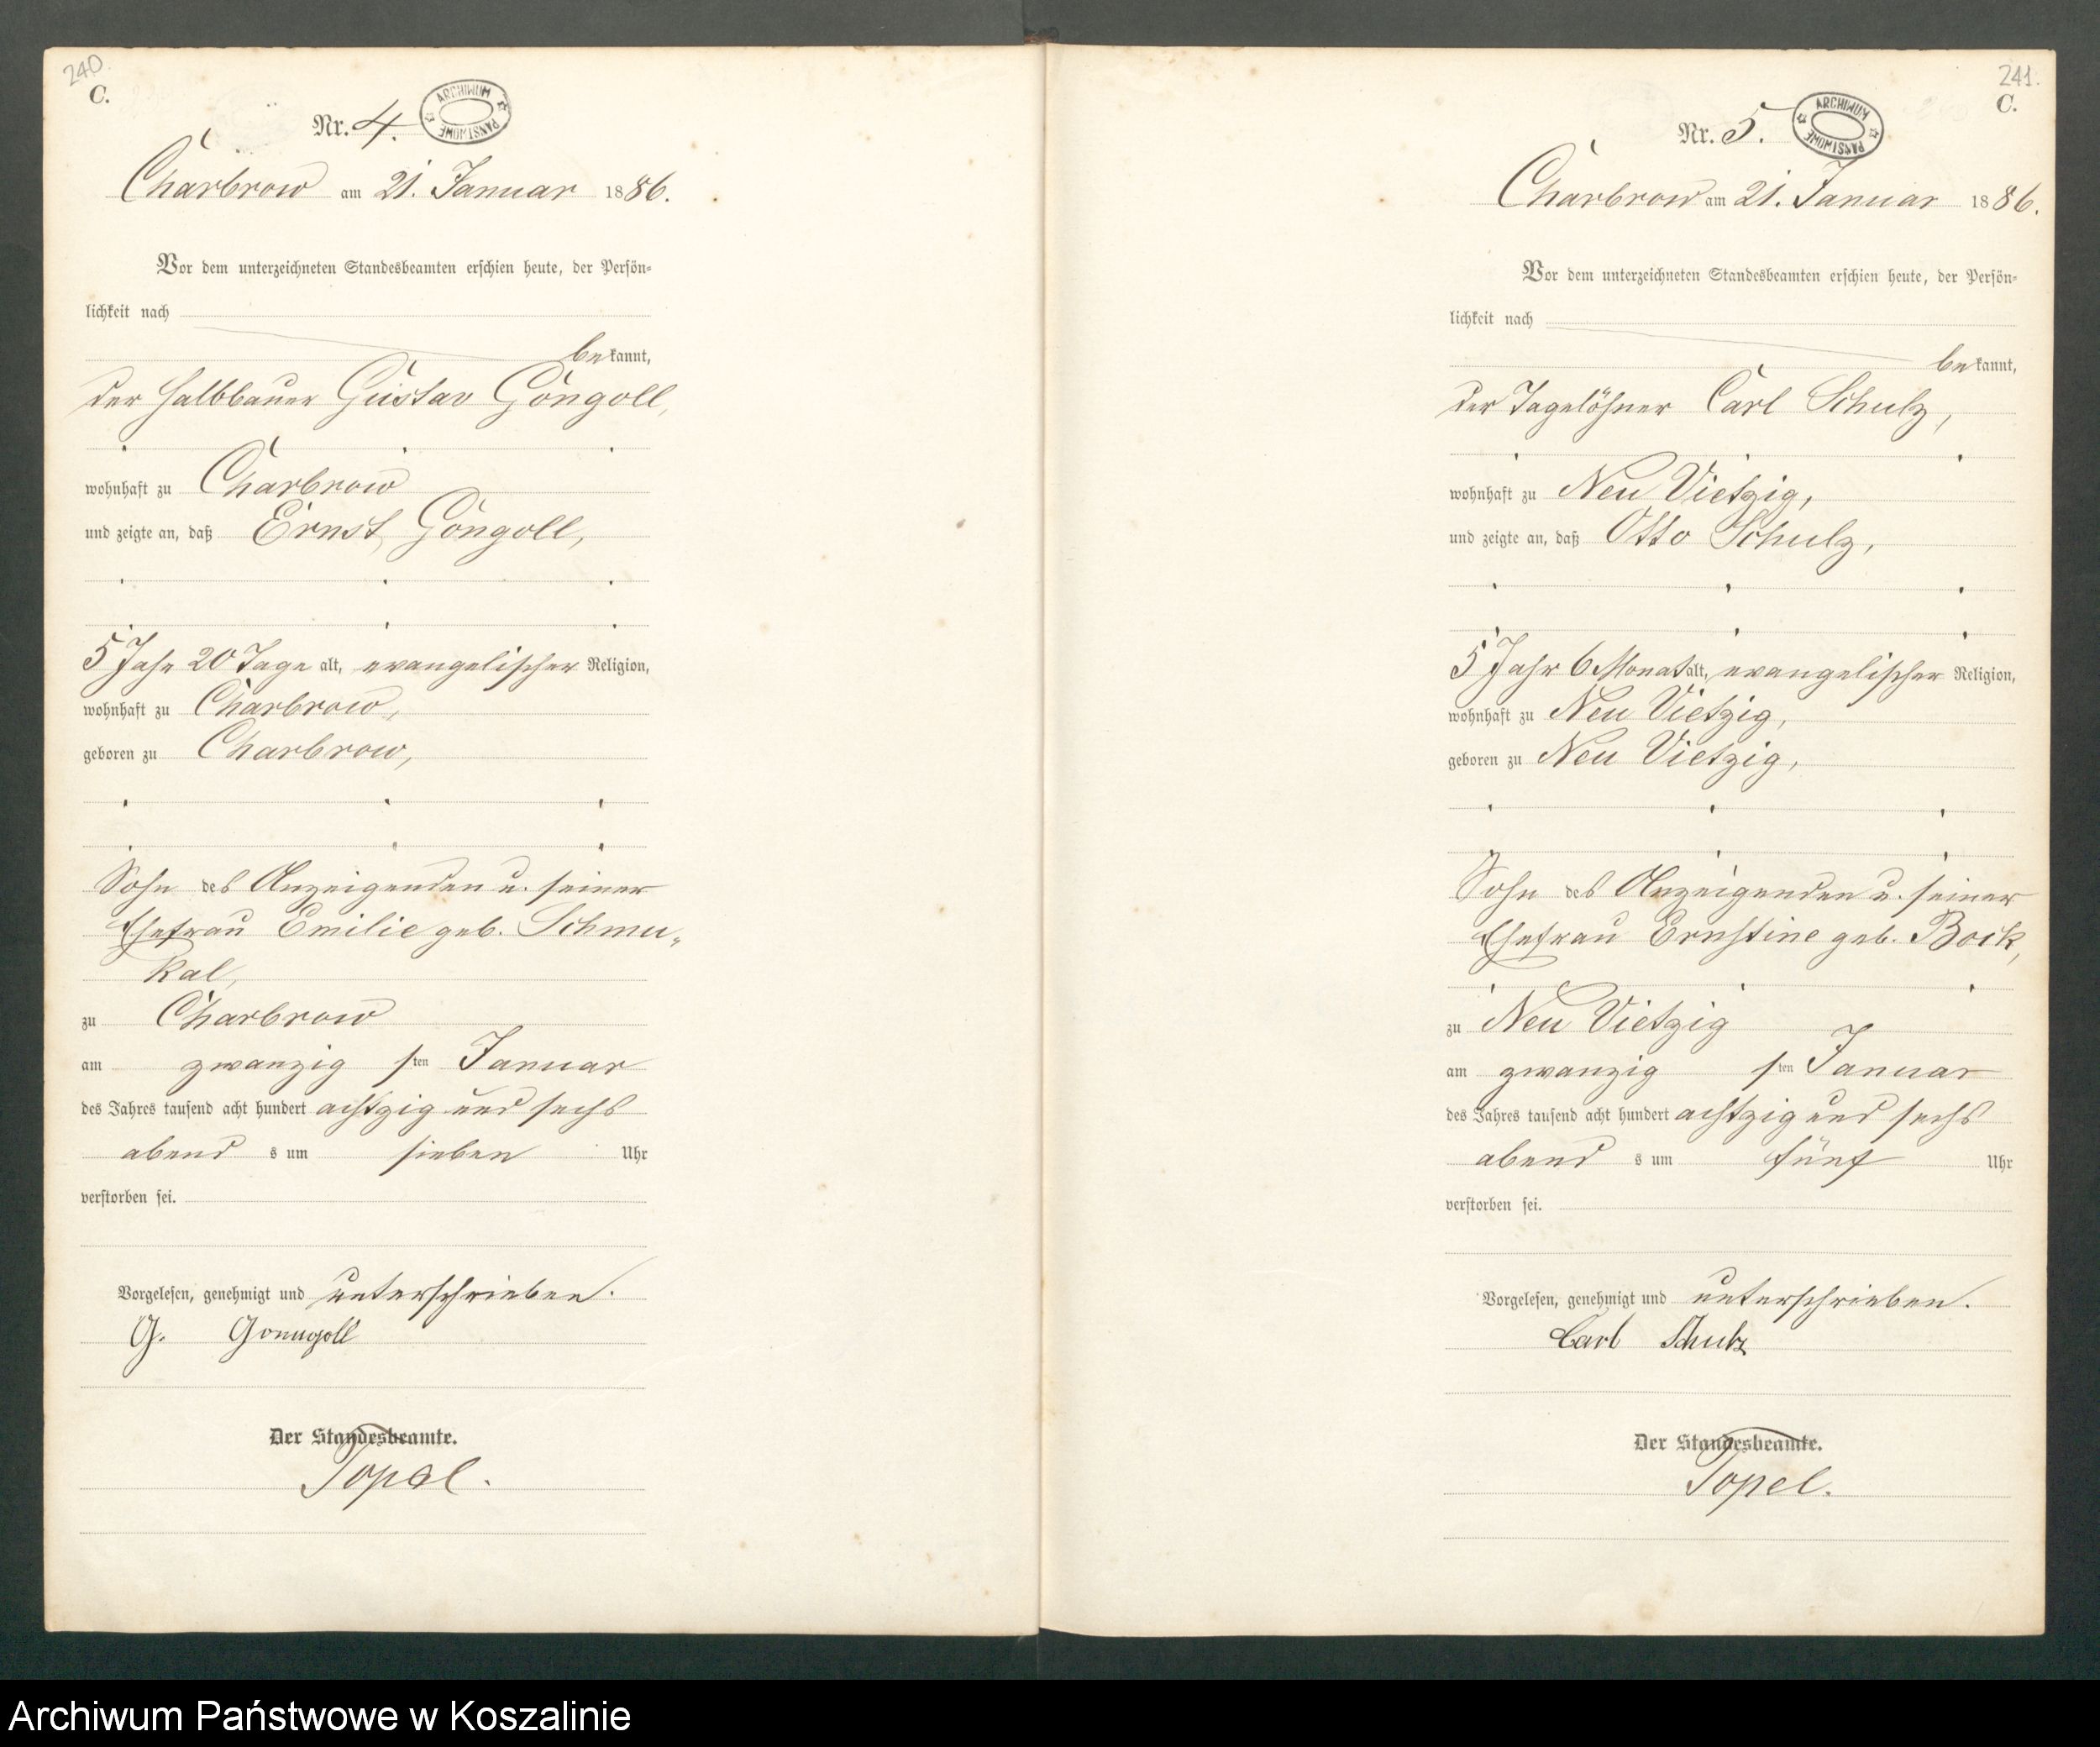 240.
C.
Nr. 4.
ARCHIWUM PAŃSTWOWE
Charbrow am 21. Januar 1886.
Vor dem unterzeichneten Standesbeamten erschien heute, der Persön-
lichkeit nach
bekannt,
der Halbbauer Gustav Göngoll,
wohnhaft zu Charbrow
und zeigte an, daß Ernst Göngoll,
5 Jahr 20 Tage alt, evangelischer Religion,
wohnhaft zu Charbrow,
geboren zu Charbrow,
Sohn des Anzeigenden u. seiner
Ehefrau Emilie geb. Schmu-
kal,
zu Charbrow
am zwanzigsten Januar
des Jahres tausend acht hundert achtzig und sechs
abends um sieben Uhr
verstorben sei.
Vorgelesen, genehmigt und unterschrieben.
G.
Der Standesbeamte.
Topel.
241.
C.
Nr. 5.
ARCHIWUM PAŃSTWOWE
Charbrow am 21. Januar 1886.
Vor dem unterzeichneten Standesbeamten erschien heute, der Persön-
lichkeit nach
bekannt,
der Tagelöhner Carl Schulz,
wohnhaft zu Neu Vietzig,
und zeigte an, daß Otto Schulz,
5 Jahr 6 Monat alt, evangelischer Religion,
wohnhaft zu Neu Vietzig,
geboren zu Neu Vietzig,
Sohn des Anzeigenden u. seiner
Ehefrau Ernstine geb. Bock,
zu Neu Vietzig
am zwanzigsten Januar
des Jahres tausend acht hundert achtzig und sechs
abends um fünf Uhr
verstorben sei.
Vorgelesen, genehmigt und unterschrieben.
Carl Schulz
Der Standesbeamte.
Topel.
Archiwum Państwowe w Koszalinie